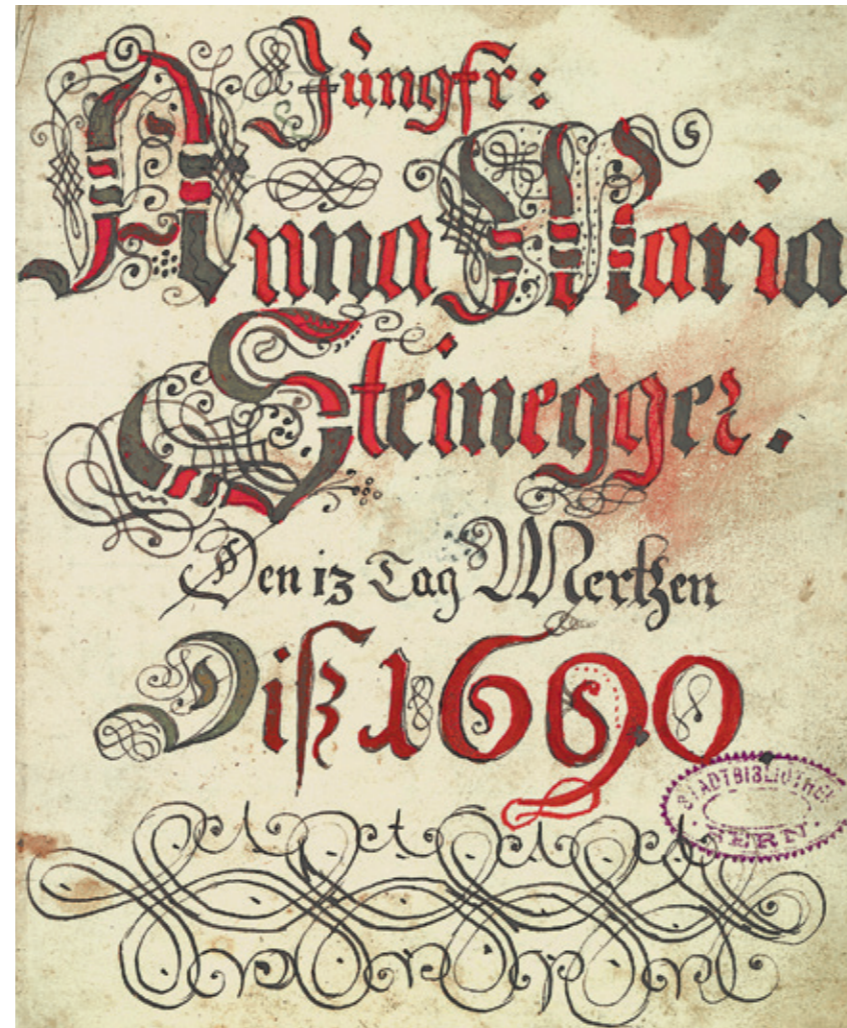 Jüngfr:
Anna Maria
Steinegger.
Den 13 Tag Mertzen
Diß 1690.
STADTBIBLIOTHEK
· BERN ·